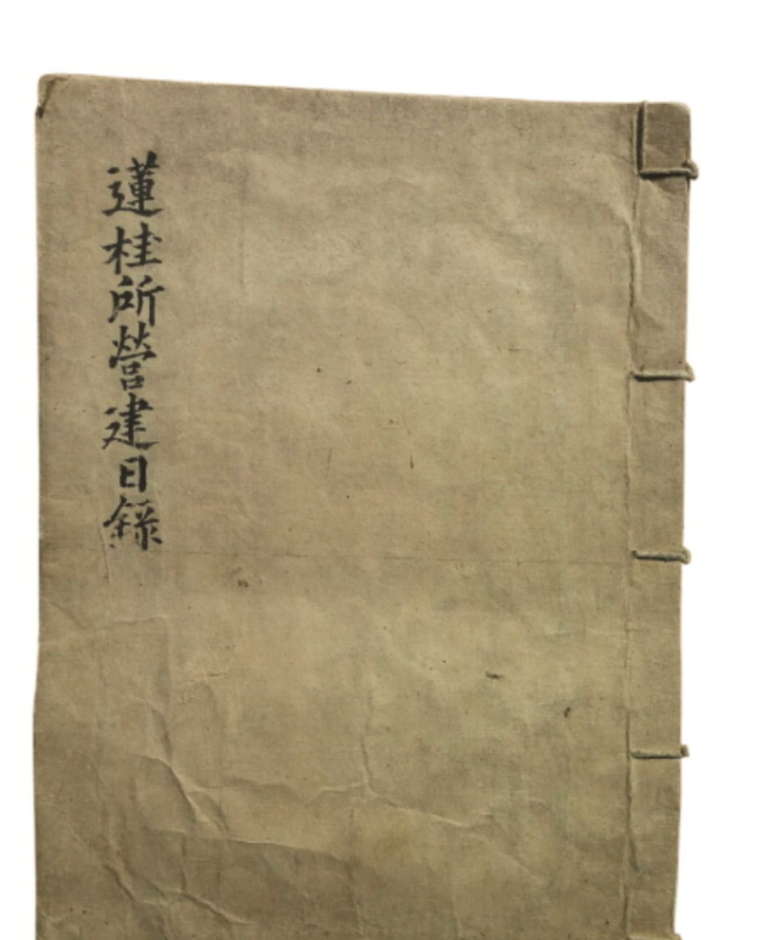 蓮桂所營建日錄